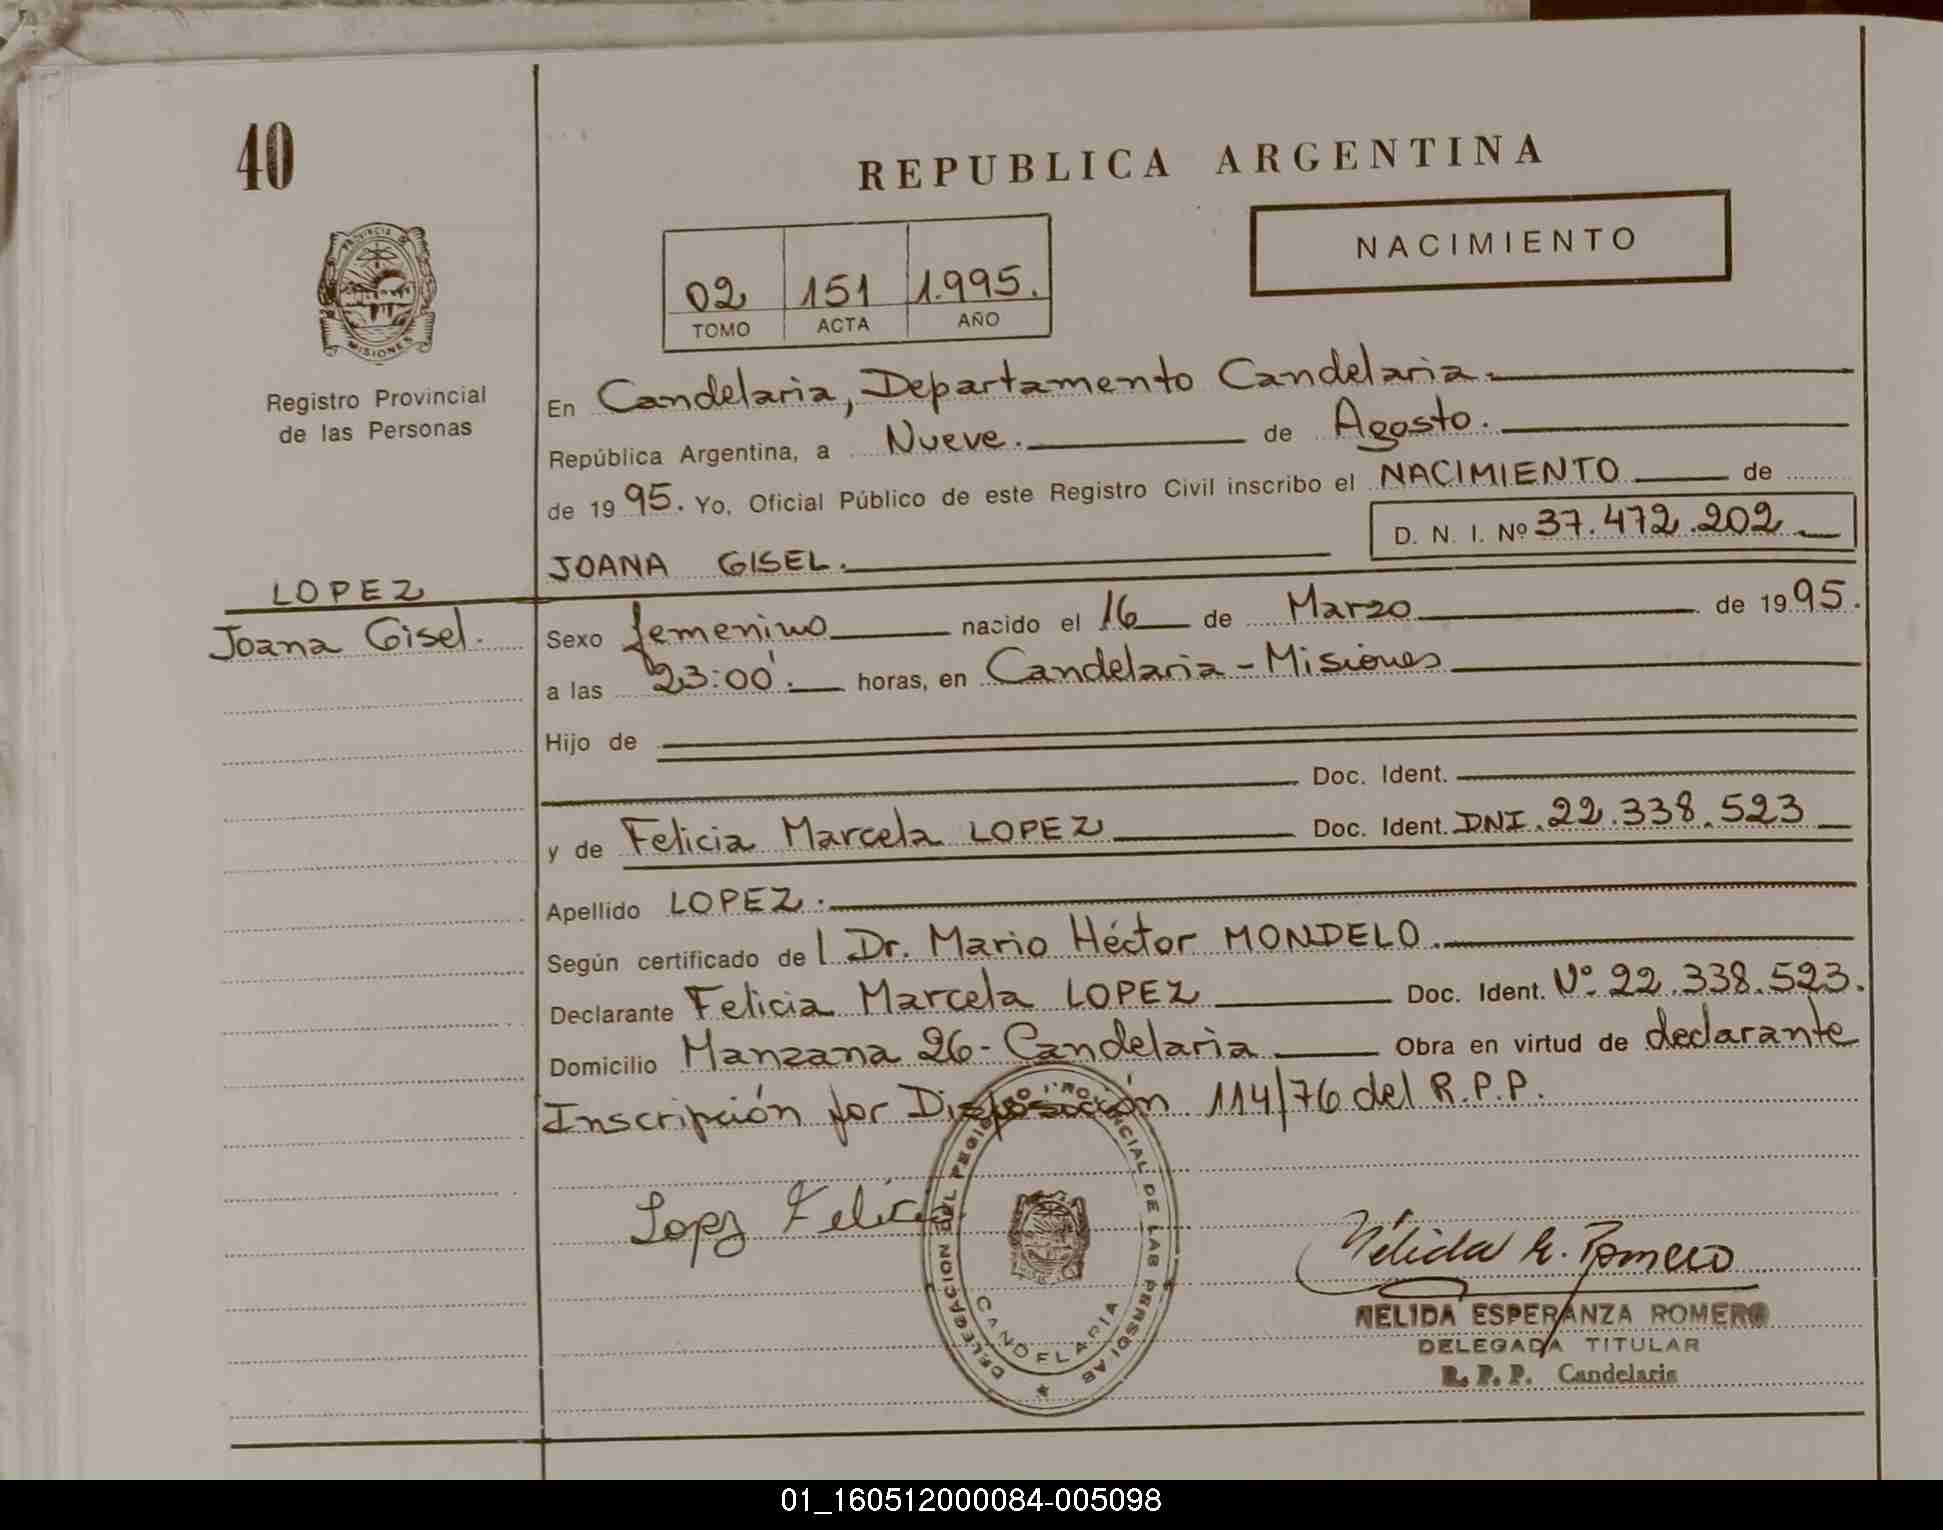 40
REPUBLICA ARGENTINA
NACIMIENTO
02 151 1.995.
TOMO ACTA AÑO
PROVINCIA
MISIONES
Registro Provincial
de las Personas
En Candelaria, Departamento Candelaria.
República Argentina, a Nueve. de Agosto.
de 1995. Yo, Oficial Público de este Registro Civil inscribo el NACIMIENTO de
D. N. I. Nº 37.472.202
JOANA GISEL.
LOPEZ
Joana Gisel.
Sexo femenino nacido el 16 de Marzo de 1995.
a las 23:00'. horas, en Candelaria - Misiones
Hijo de
Doc. Ident.
y de Felicia Marcela LOPEZ Doc. Ident. DNI. 22.338.523
Apellido LOPEZ.
Según certificado de l Dr. Mario Héctor MONDELO.
Declarante Felicia Marcela LOPEZ Doc. Ident. Nº 22.338.523.
Domicilio Manzana 26 - Candelaria Obra en virtud de declarante
Inscripción por Disposición 114/76 del R.P.P.
Lopez Felicia
DELEGACION DEL REGISTRO PROVINCIAL DE LAS PERSONAS
CANDELARIA
Nélida E. Romero
NELIDA ESPERANZA ROMERO
DELEGADA TITULAR
R. P. P. Candelaria
01_160512000084-005098